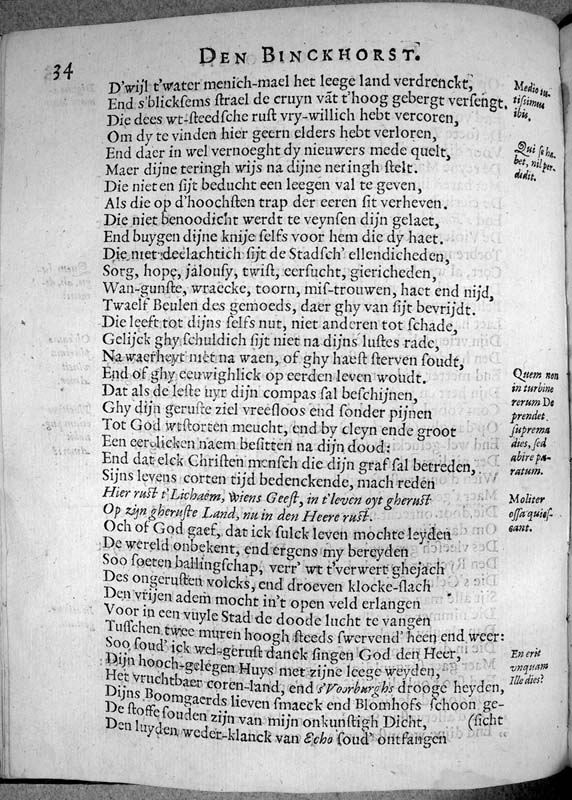 34
DEN BINCKHORST.
D'wijl t'water menich-mael het leege land verdrenckt,
End s'blicksems strael de cruyn vāt t'hoog gebergt versengt.
Die dees wt-steedsche rust vry-willich hebt vercoren,
Om dy te vinden hier geern elders hebt verloren,
End daer in wel vernoeght dy nieuwers mede quelt,
Maer dijne teringh wijs na dijne neringh stelt.
Die niet en sijt beducht een leegen val te geven,
Als die op d'hoochsten trap der eeren sit verheven.
Die niet benoodicht werdt te veynsen dijn gelaet,
End buygen dijne knije selfs voor hem die dy haet.
Die niet deelachtich sijt de Stadsch' ellendicheden,
Sorg, hope, jalousy, twist, eersucht, giericheden,
Wan-gunste, wraecke, toorn, mis-trouwen, haet end nijd,
Twaelf Beulen des gemoeds, daer ghy van sijt bevrijdt.
Die leeft tot dijns selfs nut, niet anderen tot schade,
Gelijck ghy schuldich sijt niet na dijns lustes rade,
Na waerheyt niet na waen, of ghy haest sterven soudt,
End of ghy eeuwighlick op eerden leven woudt.
Dat als de leste uyr dijn compas sal beschijnen,
Ghy dijn geruste ziel vreesloos end sonder pijnen
Tot God wtstorten meucht, end by cleyn ende groot
Een eerclicken naem besitten na dijn dood:
End dat elck Christen mensch die dijn graf sal betreden,
Sijns levens corten tijd bedenckende, mach reden
Hier rust t'Lichaem, wiens Geest, in t'leven oyt gherust
Op zijn gheruste Land, nu in den Heere rust.
Och of God gaef, dat ick sulck leven mochte leyden
De wereld onbekent, end ergens my bereyden
Soo soeten ballingschap, verr' wt t'verwert ghejach
Des ongerusten volcks, end droeven klocke-slach
Den vrijen adem mocht in't open veld erlangen
Voor in een vuyle Stad de doode lucht te vangen
Tusschen twee muren hoogh steeds swervend' heen end weer:
Soo soud' ick wel-gerust danck singen God den Heer,
Dijn hooch-gelegen Huys met zijne leege weyden,
Het vruchtbaer coren-land, end s'Voorburghs drooge heyden,
Dijns Boomgaerds lieven smaeck end Blomhofs schoon ge-
De stoffe souden zijn van mijn onkunstigh Dicht, (sicht
Den luyden weder-klanck van Echo soud' ontfangen
Medio tu-
tissimus
ibis,
Qui se ha-
bet, nil per-
didit.
Quem non
in turbine
rerum De
prendet
suprema
dies, sed
abire pa-
ratum.
Moliter
ossa quies-
cant.
En erit
vnquam
Ille dies?